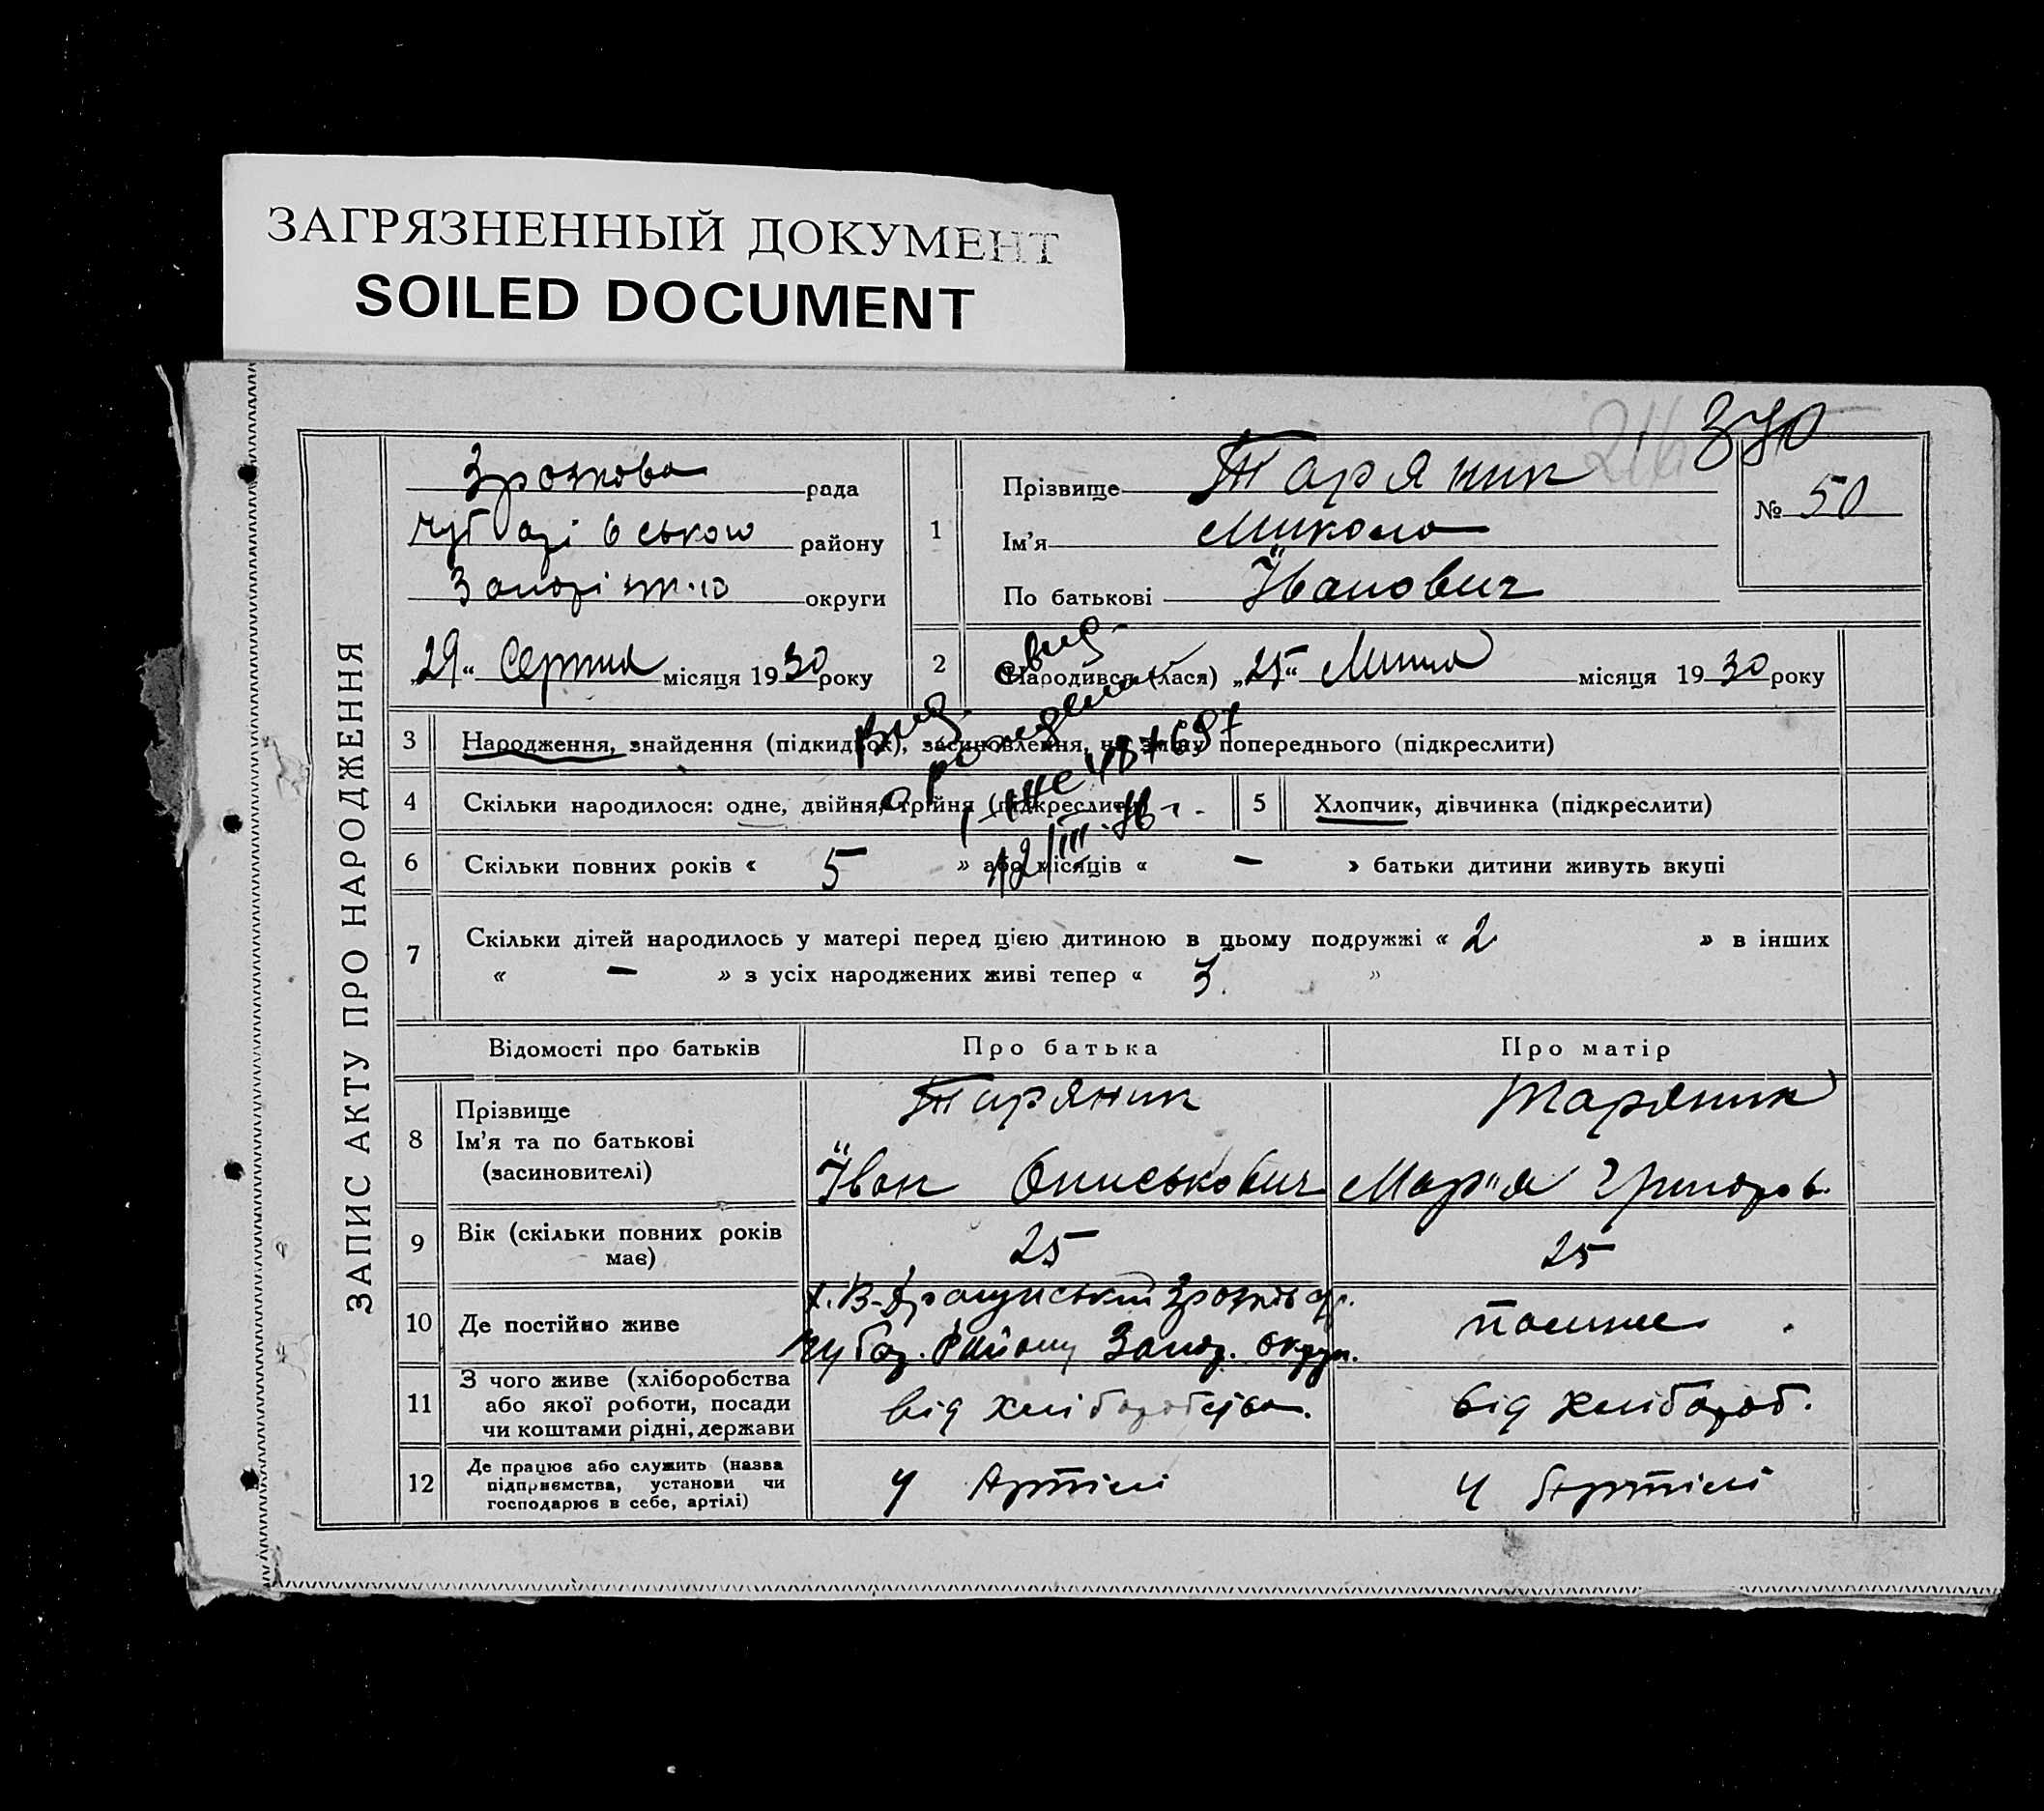 ЗАГРЯЗНЕННЫЙ ДОКУМЕНТ
SOILED DOCUMENT
370
ЗАПИС АКТУ ПРО НАРОДЖЕННЯ
рада
району
округи
„29“ Серпня місяця 1930 року
1
Прізвище Таряник
Ім'я Микола
По батькові Іванович
№ 50
2
Народився (лася) „25“ Липня місяця 1930 року
3 Народження, знайдення (підкидьок), засиновлення, на зміну попереднього (підкреслити)
4 Скільки народилося: одне, двійня, трійня (підкреслити)
5 Хлопчик, дівчинка (підкреслити)
6 Скільки повних років « 5 » або місяців « – » батьки дитини живуть вкупі
7 Скільки дітей народилось у матері перед цією дитиною в цьому подружжі « 2 » в інших
« – » з усіх народжених живі тепер « 3. »
Відомості про батьків
Про батька
Про матір
8 Прізвище
Ім'я та по батькові
(засиновителі)
Таряник
Іван Ониськович
Таряник
Марія Григоров.
9 Вік (скільки повних років
має)
25
25
10 Де постійно живе
Чубар. Району Запор. округи.
11 З чого живе (хліборобства
або якої роботи, посади
чи коштами рідні, держави
від хліборобства.
від хлібороб.
12 Де працює або служить (назва
підприємства, установи чи
господарює в себе, артілі)
У Артілі
У Артілі